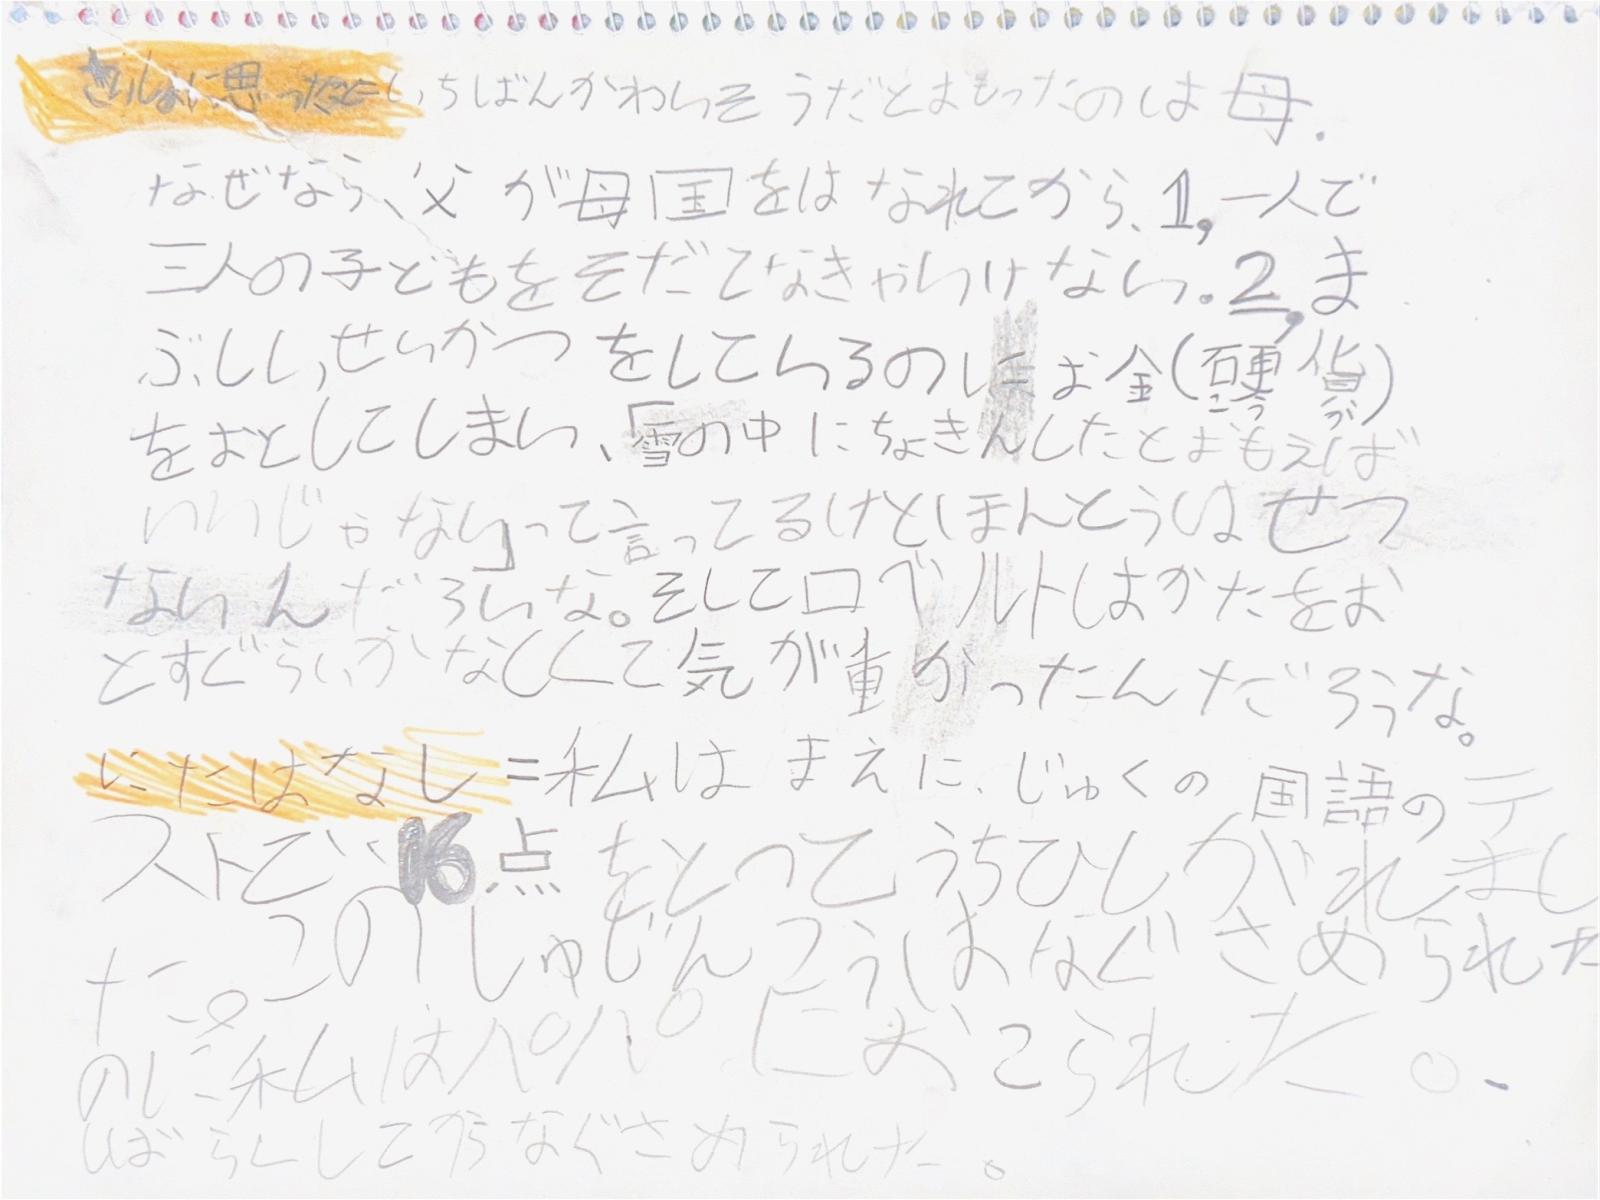 さいしょに思ったこといちばんかわいそうだとおもったのは母.
なぜなら、父が母国をはなれてから、1,一人で
三人の子どもをそだてなきゃいけない.2,ま
ぶしい,せいかつをしているのにお金(硬貨)
こうか
をおとしてしまい、「雪の中にちょきんしたとおもえば
いいじゃない」って言ってるけどほんとうはせつ
ないんだろいな。そしてロベルトはかたをお
とすぐらいかなしくて気が重かったんだろうな。
にたはなし=私はまえに、じゅくの国語のテ
ストで、16点をとってうちひしがれまし
た。このしゅじんこうはなぐさめられた
のに私はパパにおこられた。
しばらくしてからなぐさめられた。